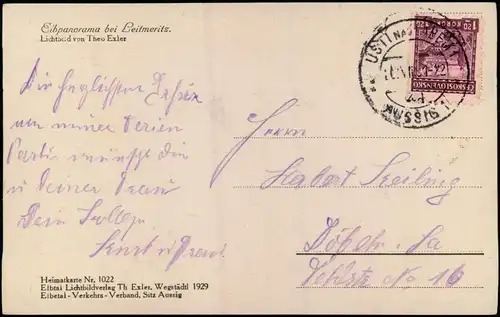 Elbpanorama bei Leitmeritz.
Lichtbild von Theo Exler
Die herzlichsten Grüße
von meiner Ferien
Partie wünscht dir
u Deiner Frau
Dein Kollege
Kurt u Frau
Heimatkarte Nr. 1022
Elbtal Lichtbildverlag Th Exler, Wegstädtl 1929
Elbetal - Verkehrs - Verband, Sitz Aussig
ÚSTÍ NAD LABEM
AUSSIG
ČESKOSLOVENSKO
Herrn
Herbert Keiling
Döbeln. Sa
No 16